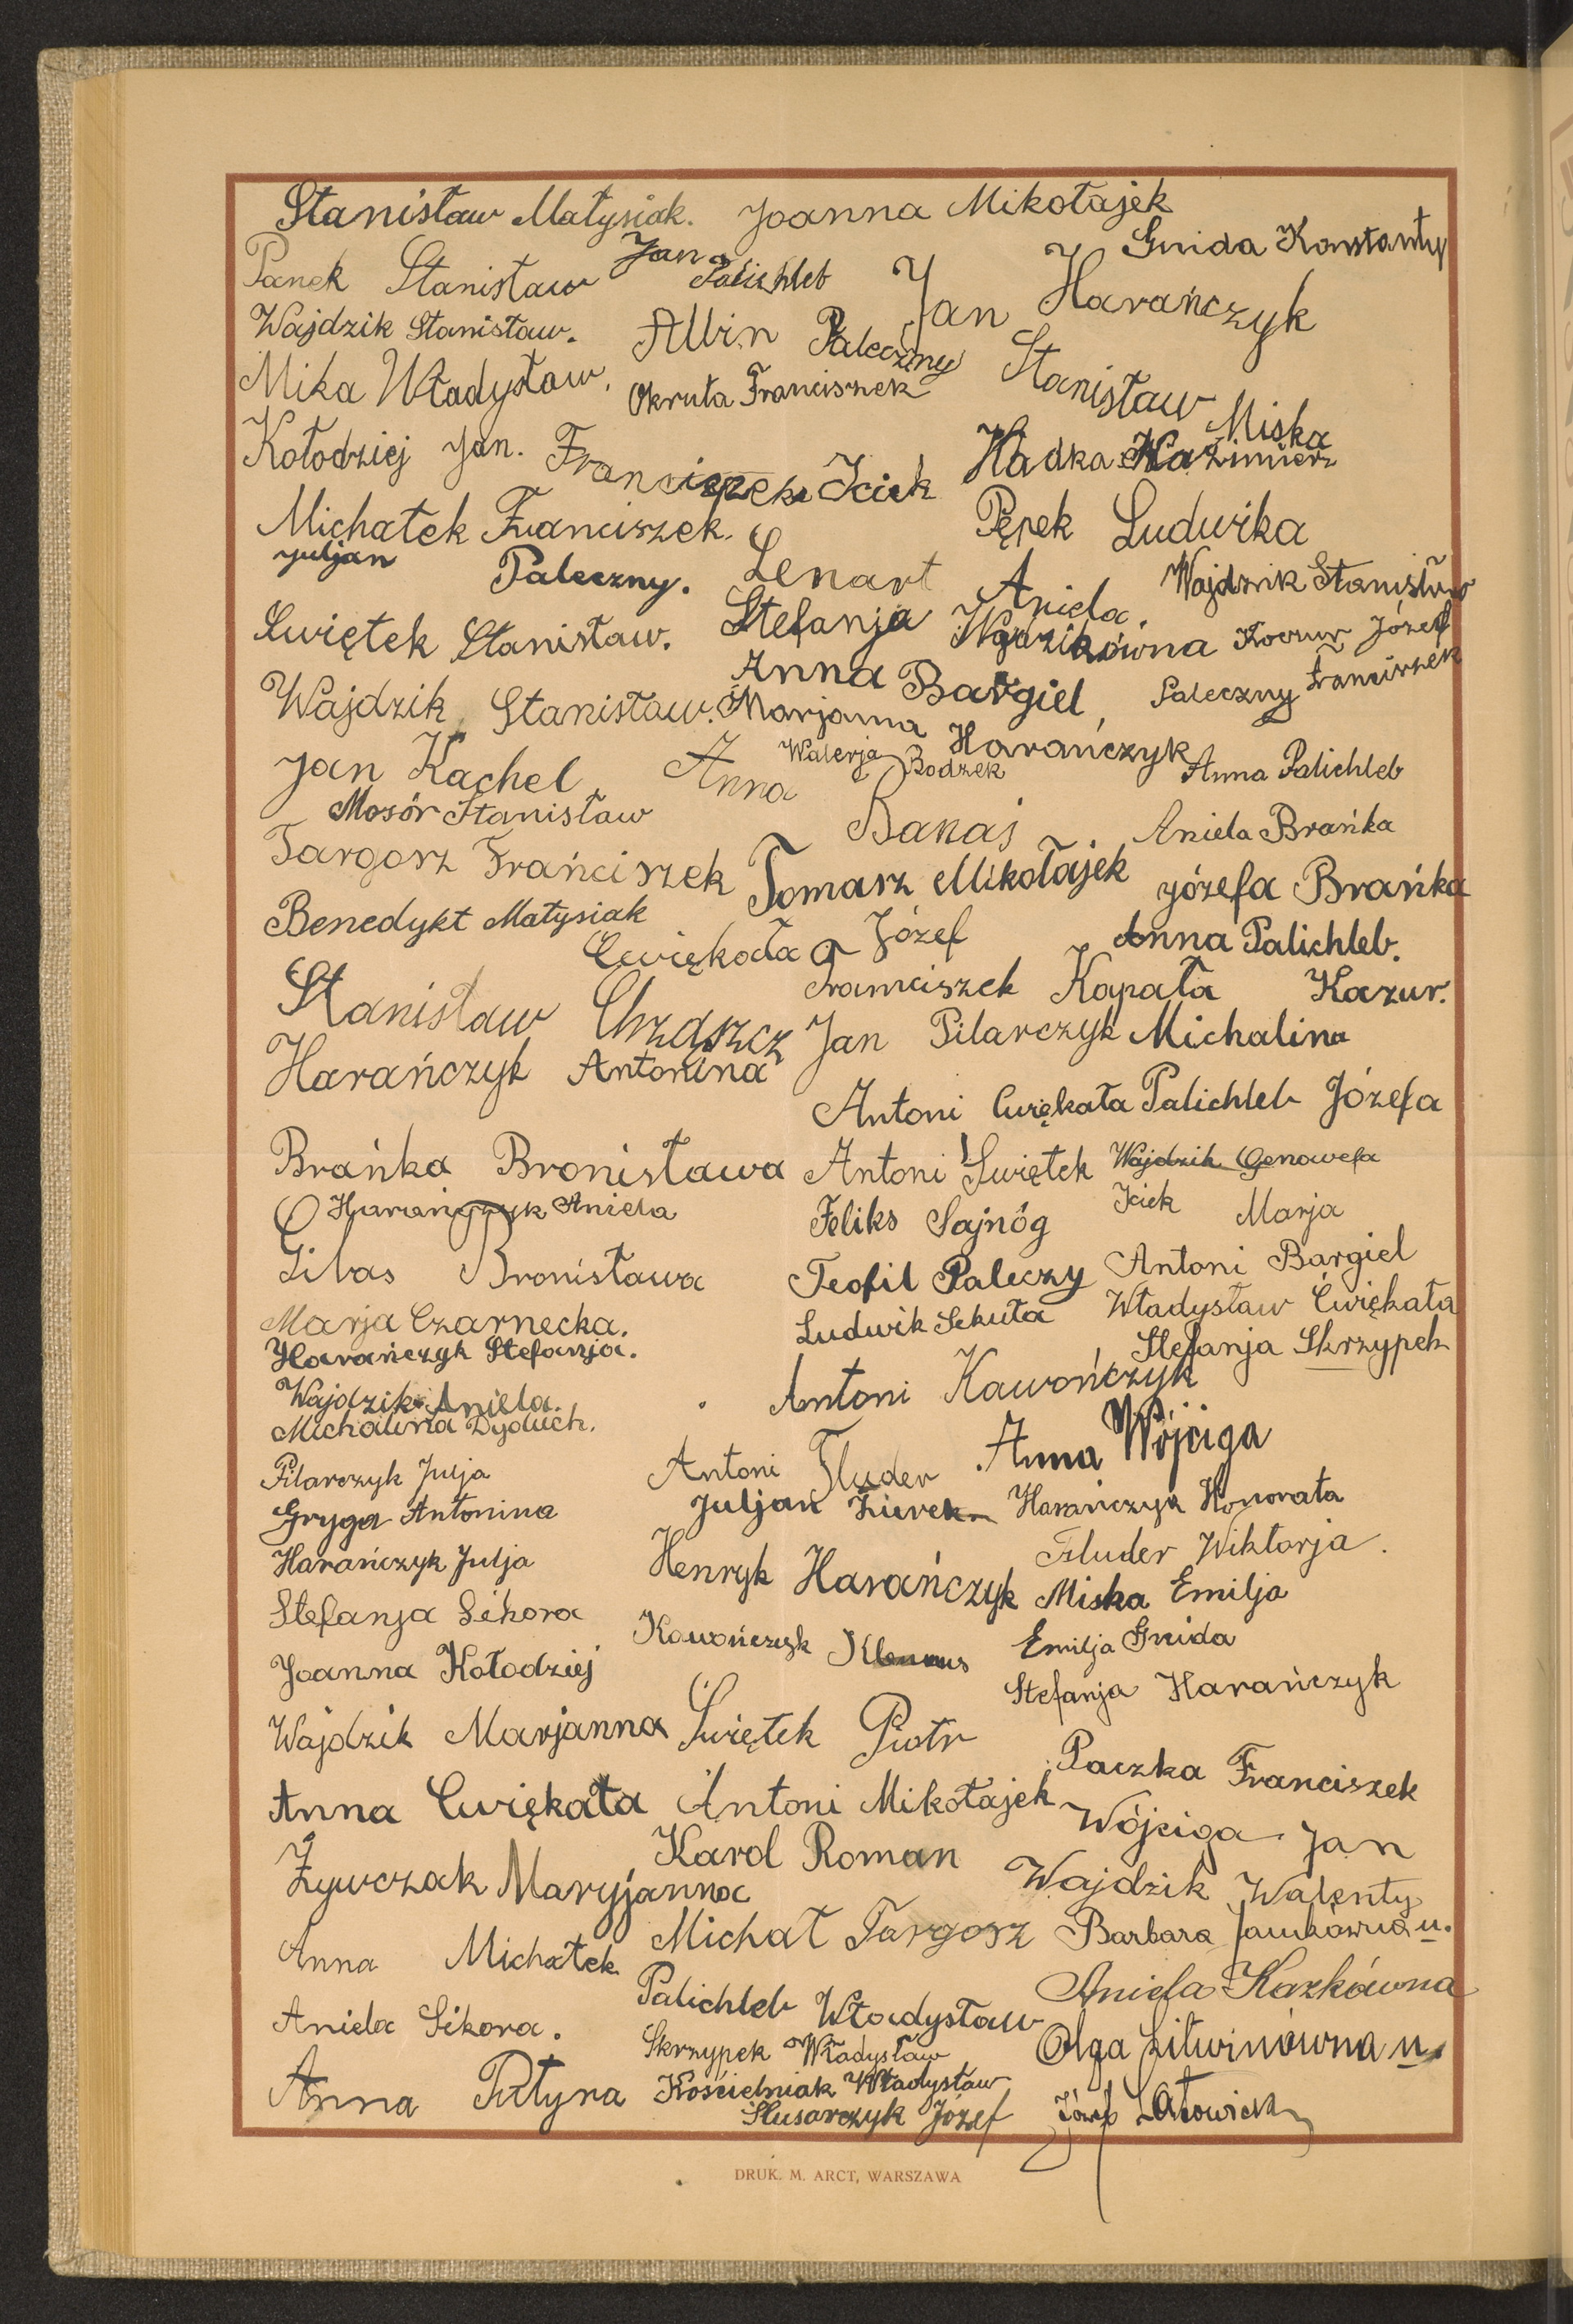 Stanisław Matysiak. Joanna Mikołajek
Gnida Konstanty
Panek Stanisław Jan Palichleb Jan Harańczyk
Wajdzik Stanisław. Albin Paleczny
Mika Władysław. Okruta Franciszek Stanisław Miska
Kołodziej Jan. Franciszek Iciek Hadka Kazimierz
Michałek Franciszek. Pępek Ludwika
Juljan Paleczny. Lenart Aniela. Wajdzik Stanisław
Swiętek Stanisław. Stefanja Wajdzikówna Koczur Józef
Anna Bargiel Paleczny Franciszek
Wajdzik Stanisław. Marjanna Harańczyk
Jan Kachel Walerja Bodzek Anna Palichleb
Anna Banaś
Mosór Stanisław Aniela Brańka
Targosz Frańciszek Tomasz Mikołajek Józefa Brańka
Benedykt Matysiak
Cwiękała Józef Anna Palichleb.
Stanisław Chrząszcz Franciszek Kapała Kazur.
Jan Pilarczyk Michalina
Harańczyk Antonina
Antoni Cwiękała Palichleb Józefa
Brańka Bronisława Antoni Swiętek Wajdzik Genowefa
Harańczyk Aniela Feliks Sajnóg Iciek Marja
Gibas Bronisława Teofil Paleczy Antoni Bargiel
Marja Czarnecka. Ludwik Sekuła Władysław Cwiękała
Harańczyk Stefanja. Stefanja Skrzypek
Wajdzik Aniela. Antoni Kawończyk
Michalina Dyduch.
Pilarczyk Julja Antoni Fluder Anna Wójciga
Gryga Antonina Juljan Żurek Harańczyk Honorata
Harańczyk Julja Henryk Harańczyk Fluder Wiktorja.
Stefanja Sikora Miska Emilja
Joanna Kołodziej Kawończyk Klemens Emilja Gnida
Stefanja Harańczyk
Wajdzik Marjanna Świętek Piotr
Paczka Franciszek
Anna Cwiękała Antoni Mikołajek
Wójciga Jan
Żywczak Maryjanna Karol Roman Wajdzik Walenty
Anna Michałek Michał Targosz Barbara Jankówna n.
Palichleb Władysław Aniela Kozkówna
Aniela Sikora. Skrzypek Władysław Olga Litwinówna n.
Anna Putyra Kościelniak Władysław
Slusarczyk Józef Józef Latowicz
DRUK. M. ARCT, WARSZAWA